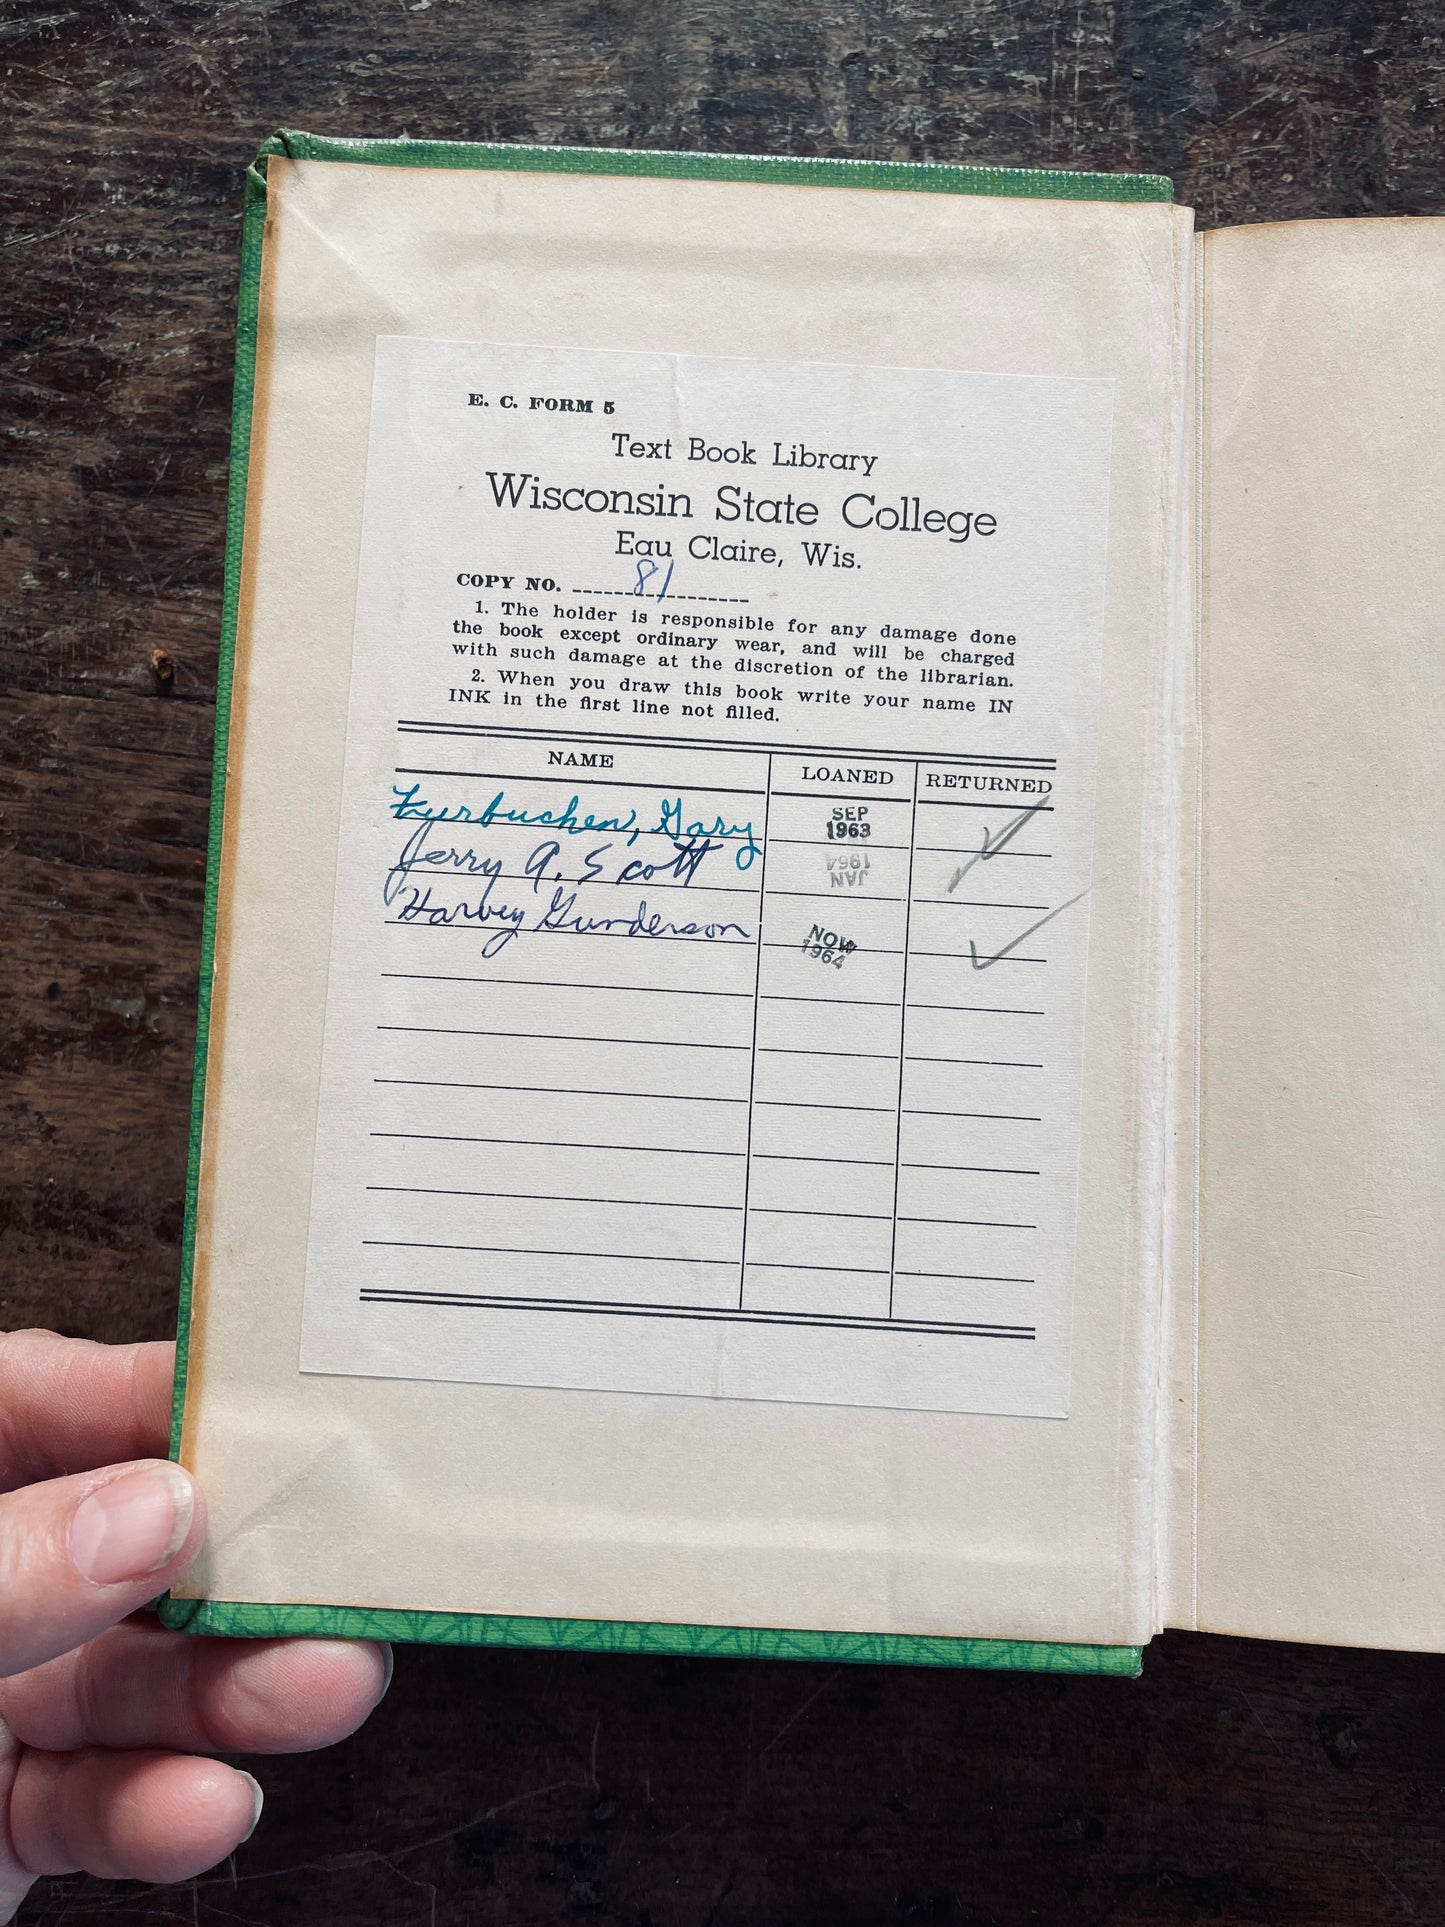 E. C. FORM 5
Text Book Library
Wisconsin State College
Eau Claire, Wis.
COPY NO. 81
1. The holder is responsible for any damage done
the book except ordinary wear, and will be charged
with such damage at the discretion of the librarian.
2. When you draw this book write your name IN
INK in the first line not filled.
NAME LOANED RETURNED
Furbuchen, Gary SEP 1963
Jerry A. Scott JAN 1964
Harvey Gunderson NOV 1964